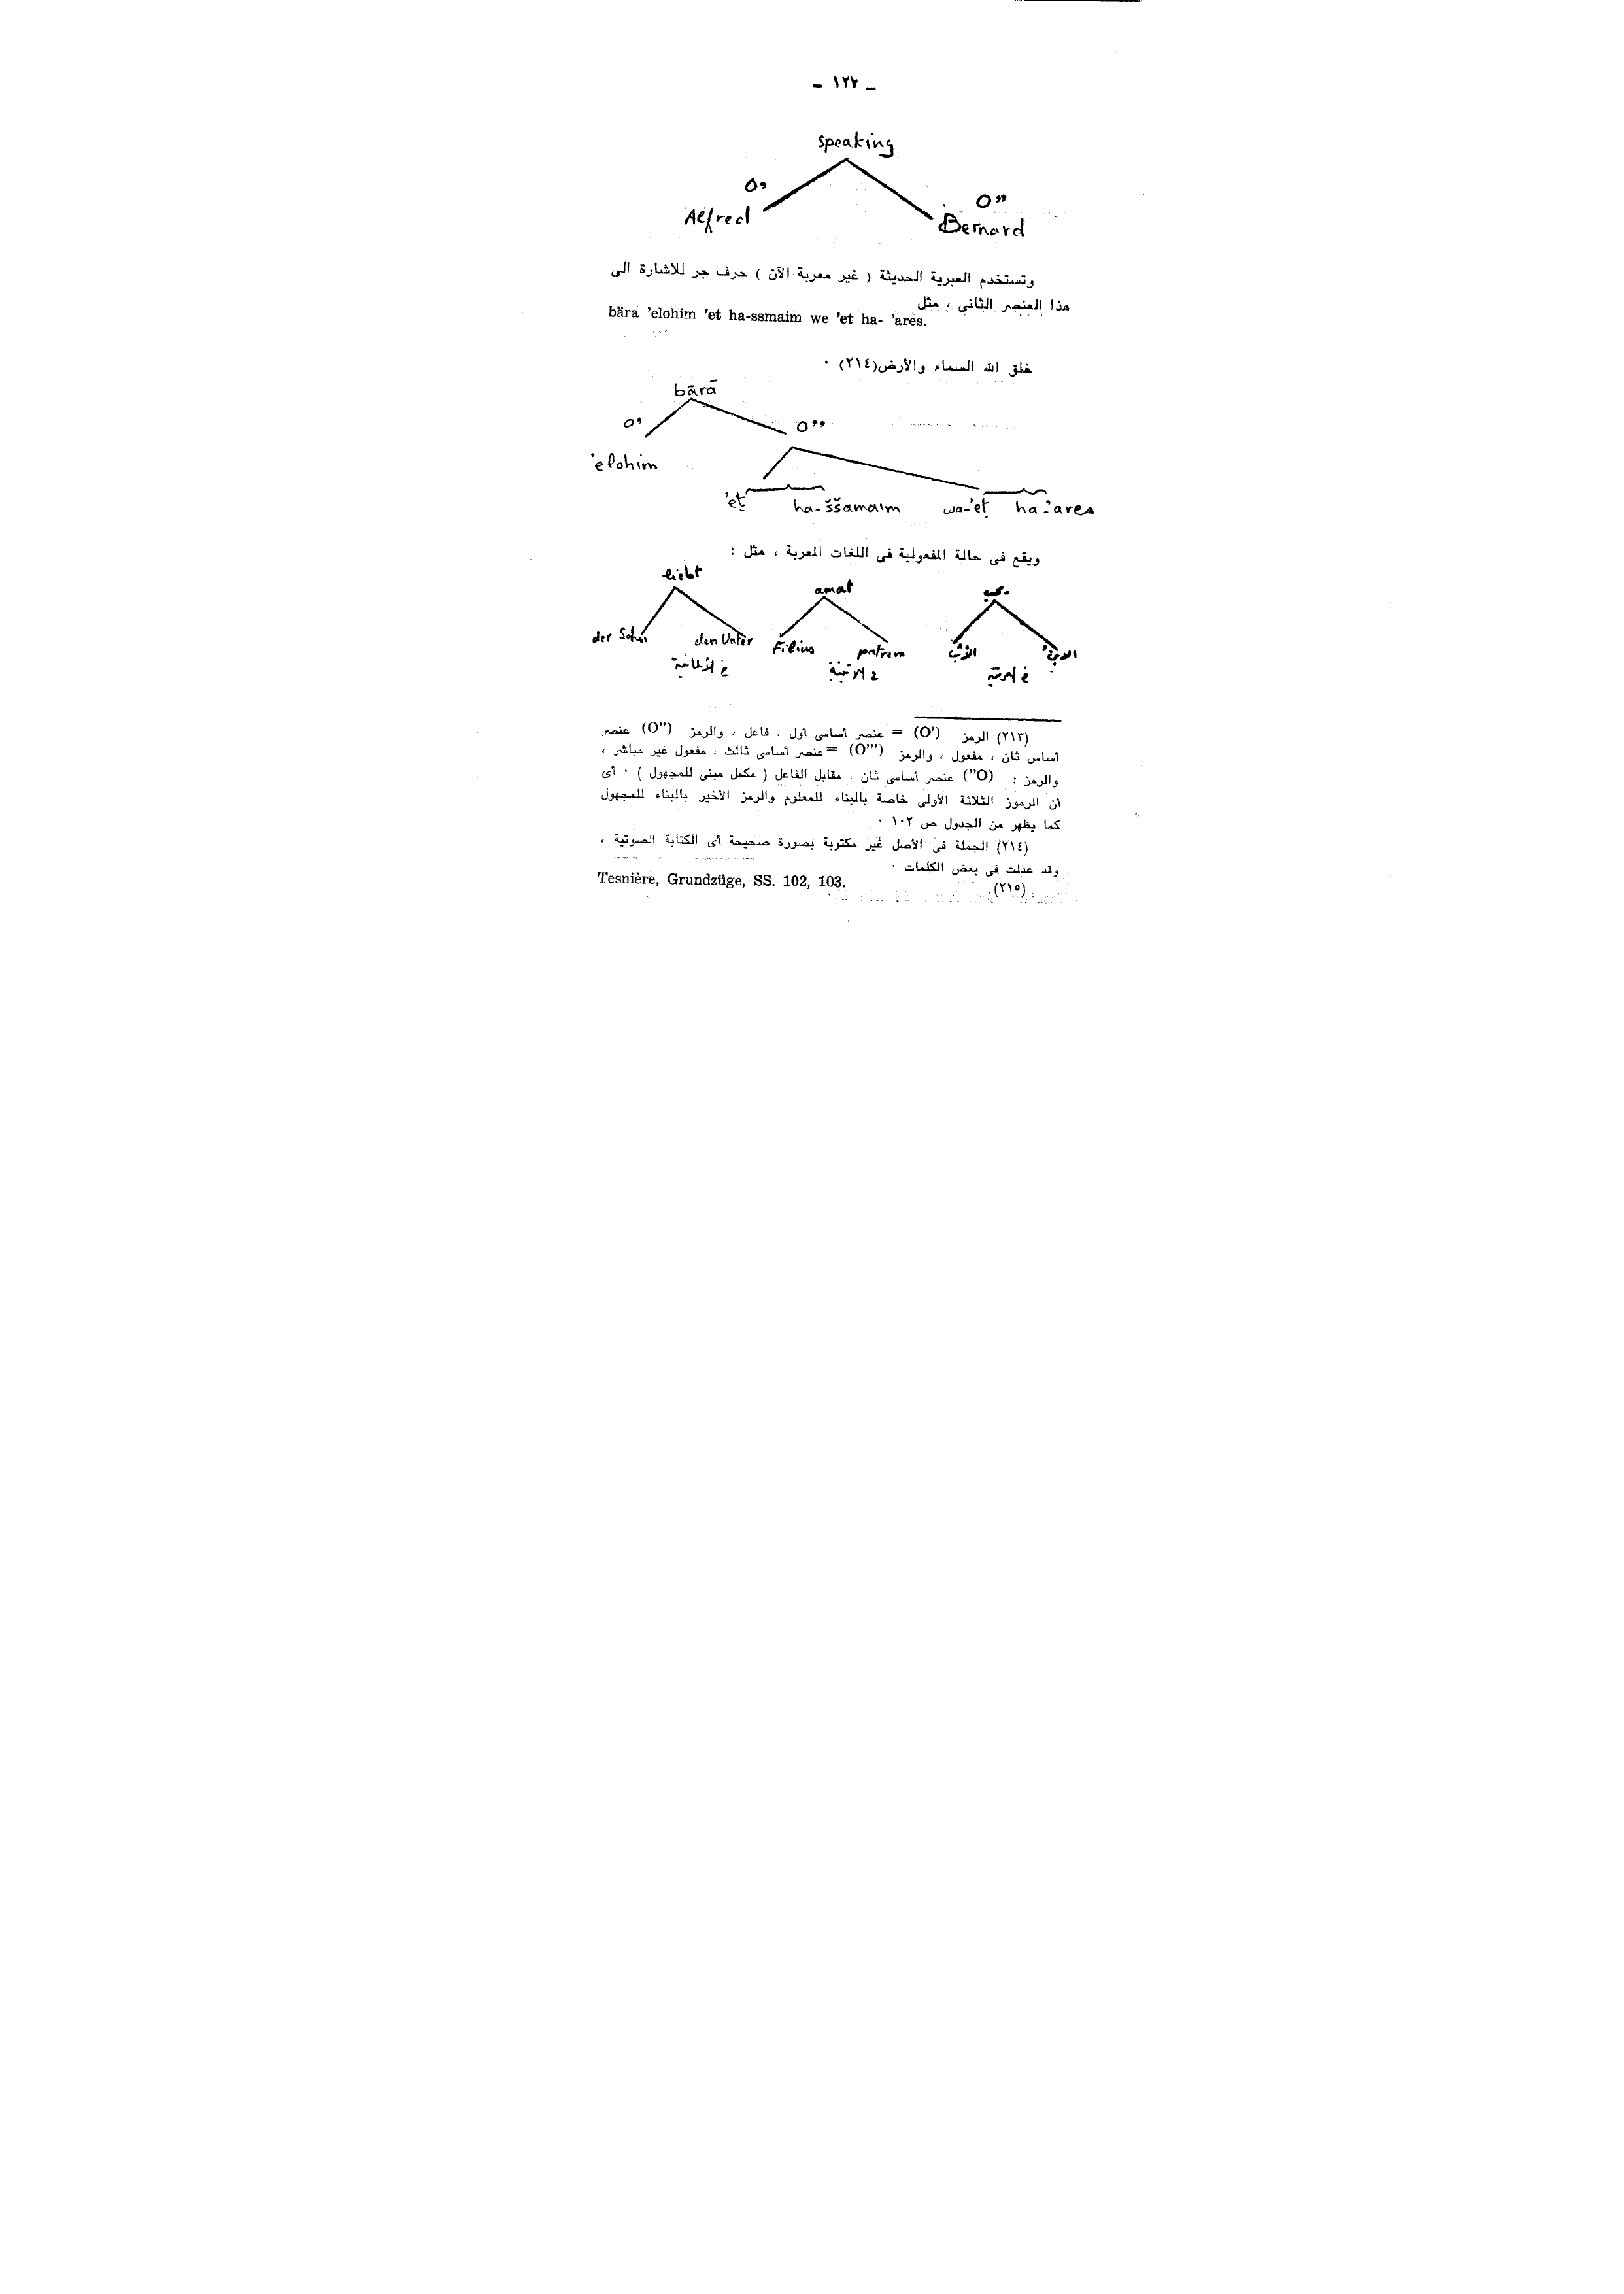 ـ ١٢٧ ـ
speaking
O’
O”
Alfred
Bernard
وتستخدم العبرية الحديثة ( غير معربة الآن ) حرف جر للاشارة الى
هذا العنصر الثاني ، مثل
bära ’elohim ’et ha-ssmaim we ’et ha- ’ares.
خلق الله السماء والأرض(٢١٤) ٠
bārā
O’
O’’
’elohim
’eṭ ha-ššamaim wa-’eṭ ha-’ares
ويقع فى حالة المفعولية فى اللغات المعربة ، مثل :
liebt amat
der Sohn den Vater Filius patrem الأب
فى الألمانية
(٢١٣) الرمز (O’) = عنصر أساسى أول ، فاعل ، والرمز (O’’) عنصر
أساس ثان ، مفعول ، والرمز (O’’’) = عنصر أساسى ثالث ، مفعول غير مباشر ،
والرمز : (’’O) عنصر أساسى ثان ، مقابل الفاعل ( مكمل مبنى للمجهول ) ٠ أى
أن الرموز الثلاثة الأولى خاصة بالبناء للمعلوم والرمز الأخير بالبناء للمجهول
كما يظهر من الجدول ص ١٠٢ ٠
(٢١٤) الجملة فى الأصل غير مكتوبة بصورة صحيحة أى الكتابة الصوتية ،
وقد عدلت فى بعض الكلمات ٠
(٢١٥) Tesnière, Grundzüge, SS. 102, 103.